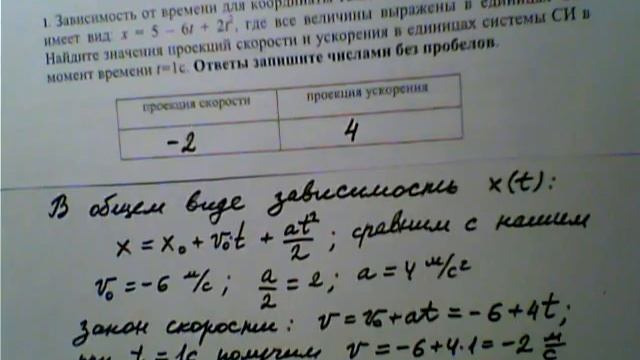 1. Зависимость от времени для координаты
имеет вид: x = 5 − 6t + 2t², где все величины выражены в единицах
Найдите значения проекций скорости и ускорения в единицах системы СИ в
момент времени t=1с. Ответы запишите числами без пробелов.
проекция скорости проекция ускорения
-2 4
В общем виде зависимость x(t):
x = x₀ + v₀t + at²/2 ; сравним с нашим
v₀ = -6 м/с ; a/2 = 2 ; a = 4 м/с²
закон скорости: v = v₀ + at = -6 + 4t ;
при t = 1с получим v = -6 + 4·1 = -2 м/с